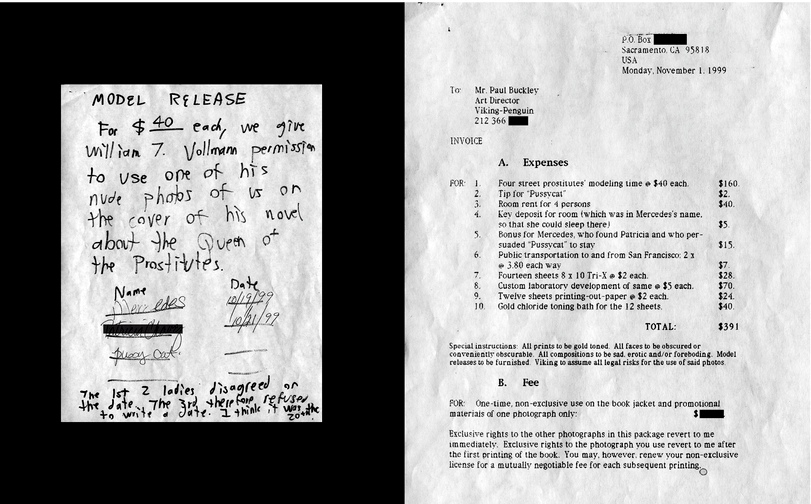 MODEL RELEASE
For $ 40 each, we give
William T. Vollmann permission
to use one of his
nude photos of us on
the cover of his novel
about the Queen of
the Prostitutes.
Name Date
Mercedes 10/19/99
10/21/99
pussy cat.
The 1st 2 ladies disagreed on
the date. The 3rd therefore refused
to write a date. I think it was
the 20th.
P.O. Box
Sacramento, CA 95818
USA
Monday, November 1, 1999
To: Mr. Paul Buckley
Art Director
Viking-Penguin
212 366
INVOICE
A. Expenses
FOR: 1. Four street prostitutes' modeling time @ $40 each. $160.
2. Tip for "Pussycat" $2.
3. Room rent for 4 persons $40.
4. Key deposit for room (which was in Mercedes's name,
so that she could sleep there) $5.
5. Bonus for Mercedes, who found Patricia and who per-
suaded "Pussycat" to stay $15.
6. Public transportation to and from San Francisco: 2 x
@ 3.80 each way $7.
7. Fourteen sheets 8 x 10 Tri-X @ $2 each. $28.
8. Custom laboratory development of same @ $5 each. $70.
9. Twelve sheets printing-out-paper @ $2 each. $24.
10. Gold chloride toning bath for the 12 sheets. $40.
TOTAL: $391
Special instructions: All prints to be gold toned. All faces to be obscured or
conveniently obscurable. All compositions to be sad, erotic and/or foreboding. Model
releases to be furnished. Viking to assume all legal risks for the use of said photos.
B. Fee
FOR: One-time, non-exclusive use on the book jacket and promotional
materials of one photograph only: $
Exclusive rights to the other photographs in this package revert to me
immediately. Exclusive rights to the photograph you use revert to me after
the first printing of the book. You may, however, renew your non-exclusive
license for a mutually negotiable fee for each subsequent printing.